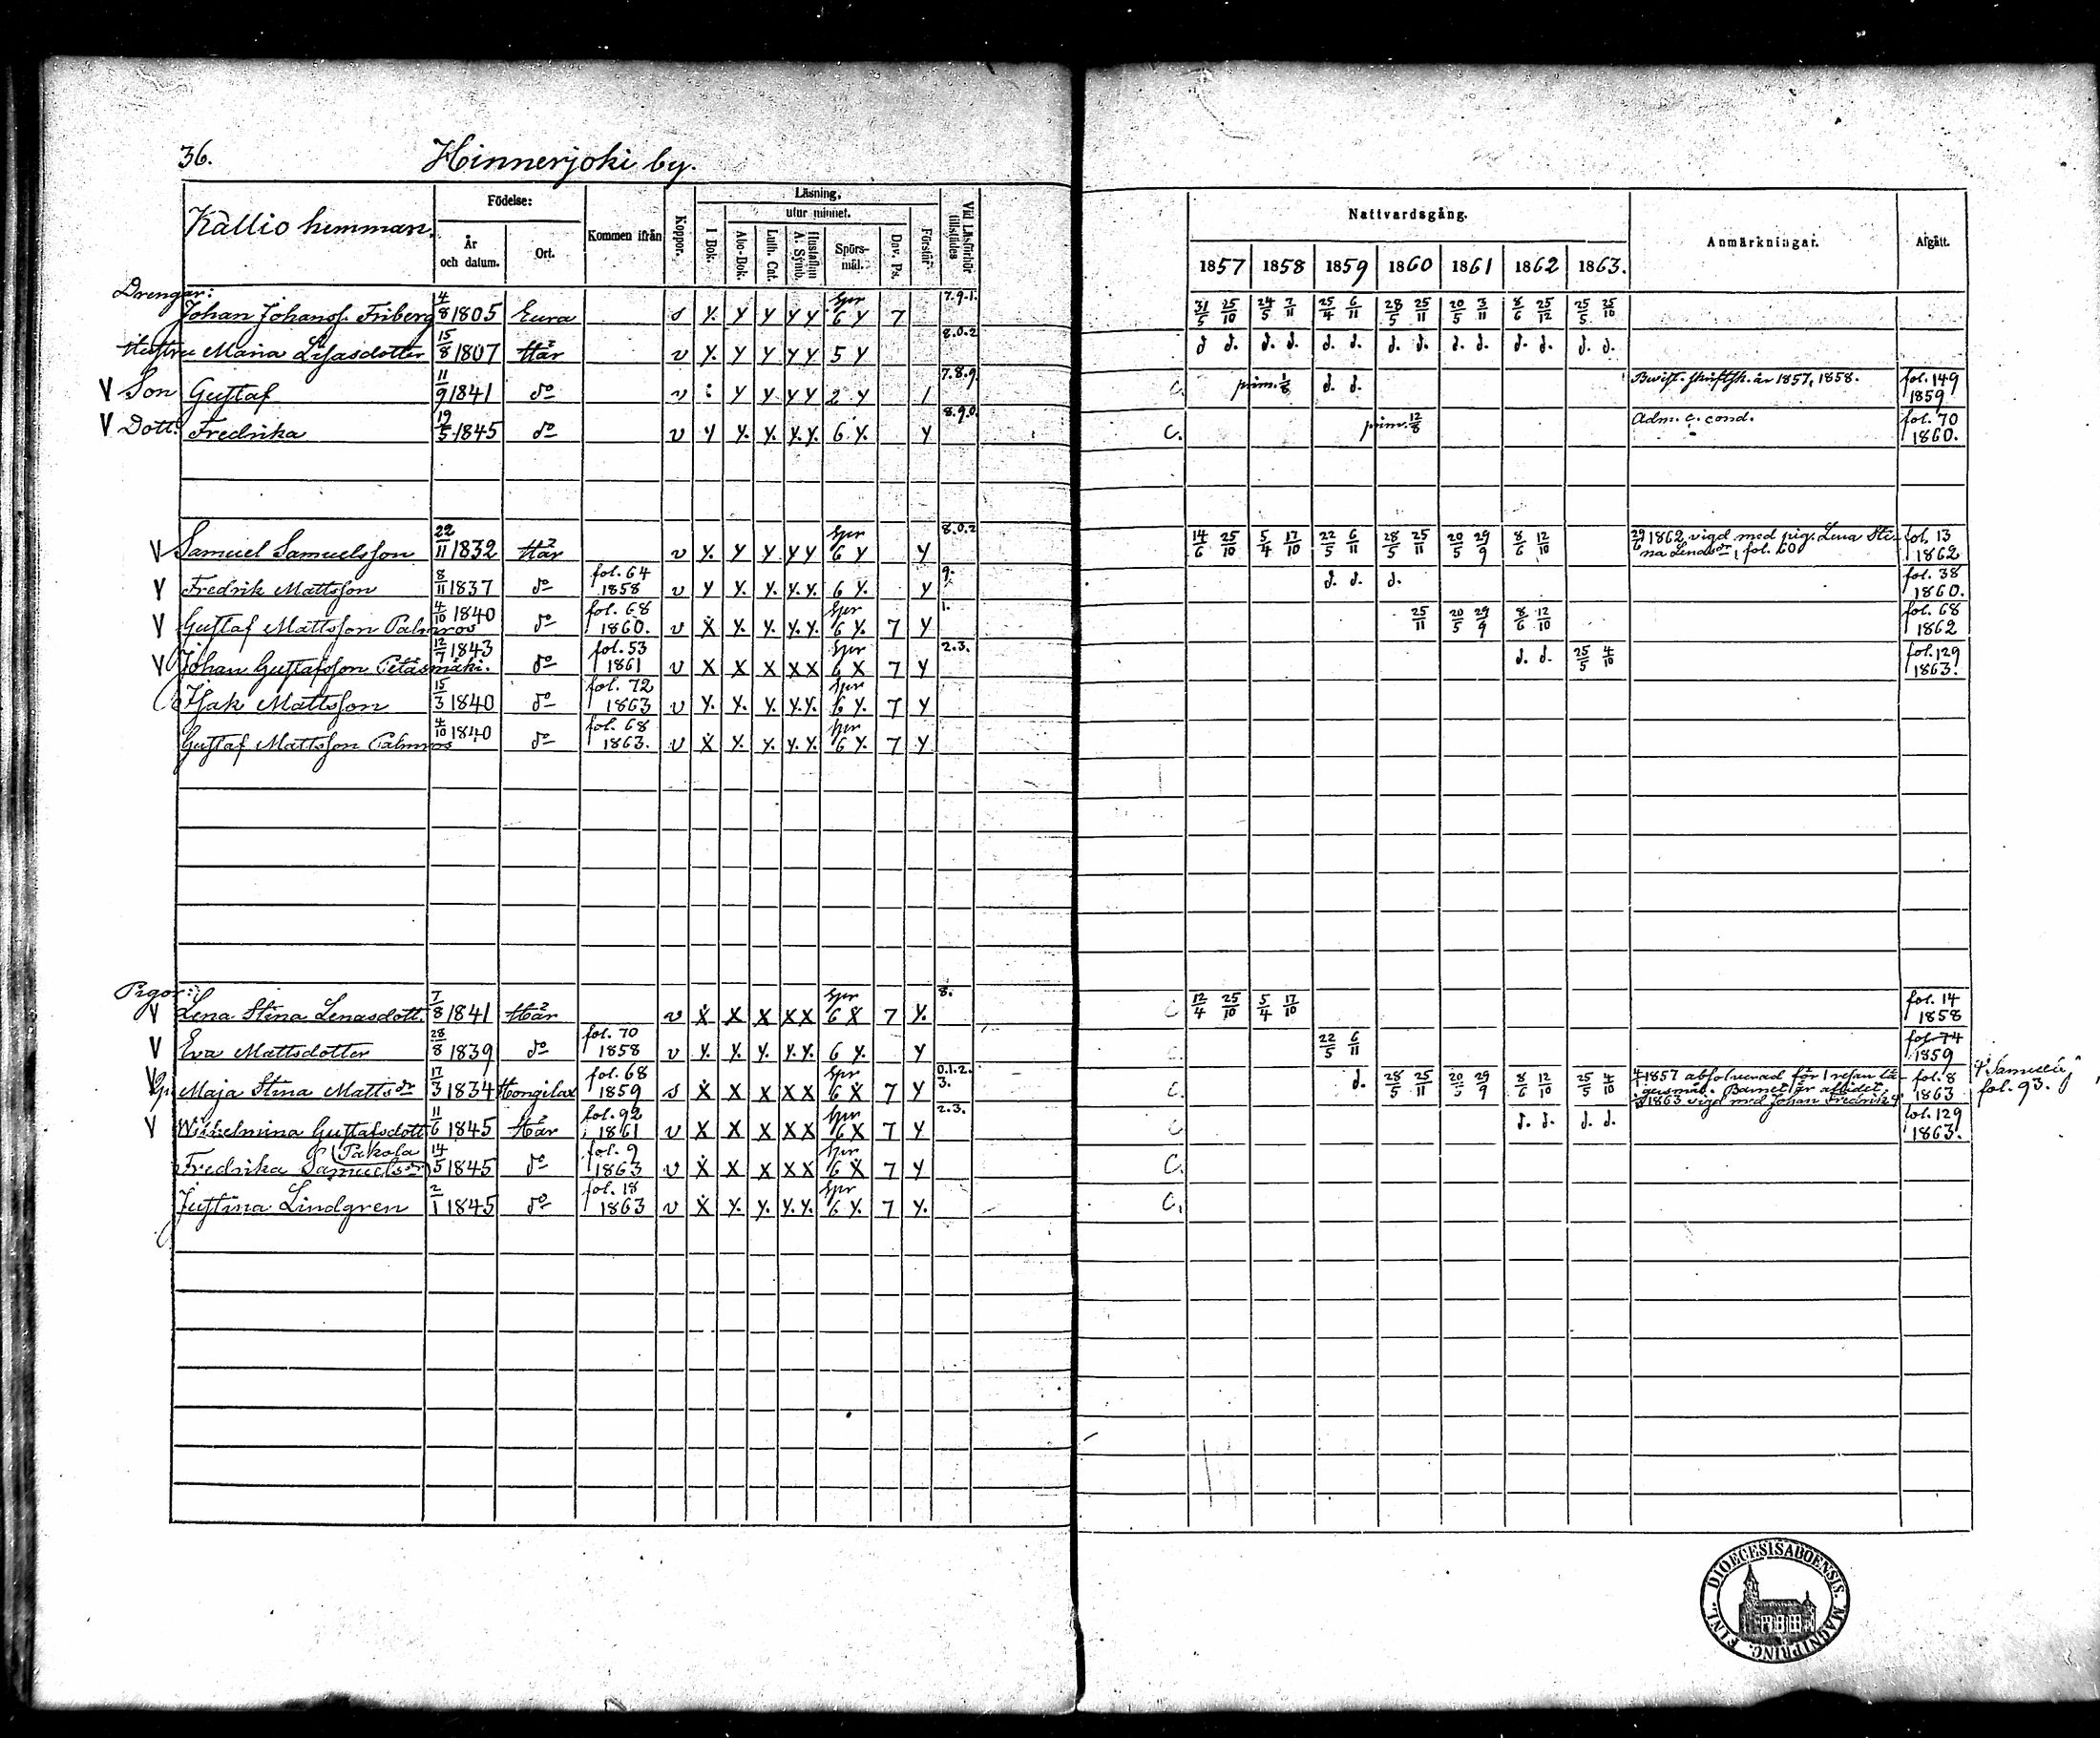 36. Hinnerjoki by.
Kallio hemman.
Födelse:
År och datum.
Ort.
Kommen ifrån
Koppor.
Läsning,
I Bok.
utur minnet.
Abc-Bok.
Luth. Cat.
Hustaflan A. Symb.
Spörsmål.
Dav. Ps.
Förstår
Vid Läsförhör tillstädes
Nattvardsgång.
1857 1858 1859 1860 1861 1862 1863.
Anmärkningar.
Afgått.
Drengar:
Johan Johanss. Friberg 4/8 1805 Eura s y. y y y y Spr 6 y 7 7.9.1. 31/5 25/10 24/5 7/11 25/4 6/11 28/5 25/11 20/5 3/11 8/6 25/12 25/5 25/10
Hustru Maria 15/8 1807 Här v y. y y y y 5 y 8.0.2 d d. d. d. d. d. d. d. d. d. d. d. d. d.
V Son Gustaf 11/9 1841 do v y y y y 2 y 1 7.8.9. C. prim. 1/8 d. d. 1857, 1858. fol. 149 1859
V Dott. Fredrika 19/5 1845 do v y y. y. y. y. 6 y. y 8.9.0. C. prim. 12/8 Adm. c. cond. fol. 70 1860.
V Samuel Samuelsson 22/11 1832 Här v y. y y y y Spr 6 y y 8.0.2 14/6 25/10 5/4 17/10 22/5 6/11 28/5 25/11 20/5 29/9 8/6 12/10 29/6 1862 vigd med pig. Lena Sti- fol. 13 1862
na Lenasdr, fol. 60
V Fredrik Mattsson 8/11 1837 do fol. 64 1858 v y y. y. y. y. 6 y. y 9. d. d. d. fol. 38 1860.
V Gustaf Mattsson Palmros 4/10 1840 do fol. 68 1860. v X y. y. y. y. Spr 6 y. 7 y 1. 25/11 20/5 29/9 8/6 12/10 fol. 68 1862
V Johan Gustafsson Petäsmäki. 12/7 1843 do fol. 53 1861 v X X X X X Spr 6 X 7 y 2.3. d. d. 25/5 4/10 fol. 129 1863.
Isak Mattsson 15/3 1840 do fol. 72 1863 v y. y. y. y. y. Spr 6 y. 7 y
Gustaf Mattsson Palmros 4/10 1840 do fol. 68 1863. v X y. y. y. y. Spr 6 y. 7 y
Pigor:
V Lena Stina Lenasdott. 7/8 1841 Här v X X X X X Spr 6 X 7 y. 8. C 12/4 25/10 5/4 17/10 fol. 14 1858
V Eva Mattsdotter 28/8 1839 do fol. 70 1858 v y. y. y. y. y. 6 y. y C. 22/5 6/11 fol. 74 1859
V Maja Stina Mattsdr 17/3 1834 Hongilax fol. 68 1859 s X X X X X Spr 6 X 7 y 0.1.2. 3. C. d. 28/5 25/11 20/5 29/9 8/6 12/10 25/5 4/10 1857 absolverad för 1 resan lä- fol. 8 1863
gersmål. Barnet är aflidet.
1863 vigd med Johan Fredrik
fol. 93.
V Wilhelmina Gustafsdott 11/6 1845 Här fol. 92 1861 v X X X X X Spr 6 X 7 y 2.3. C d. d. d. d. fol. 129 1863.
Fredrika Samuelsdr (Takola 14/5 1845 do fol. 9 1863 v X X X X X Spr 6 X 7 y C.
Justina Lindgren 2/1 1845 do fol. 18 1863 v X y. y. y. y. Spr 6 y. 7 y. C.
DIOECESIS ABOENSIS. MAGN. PRINC. FINL.